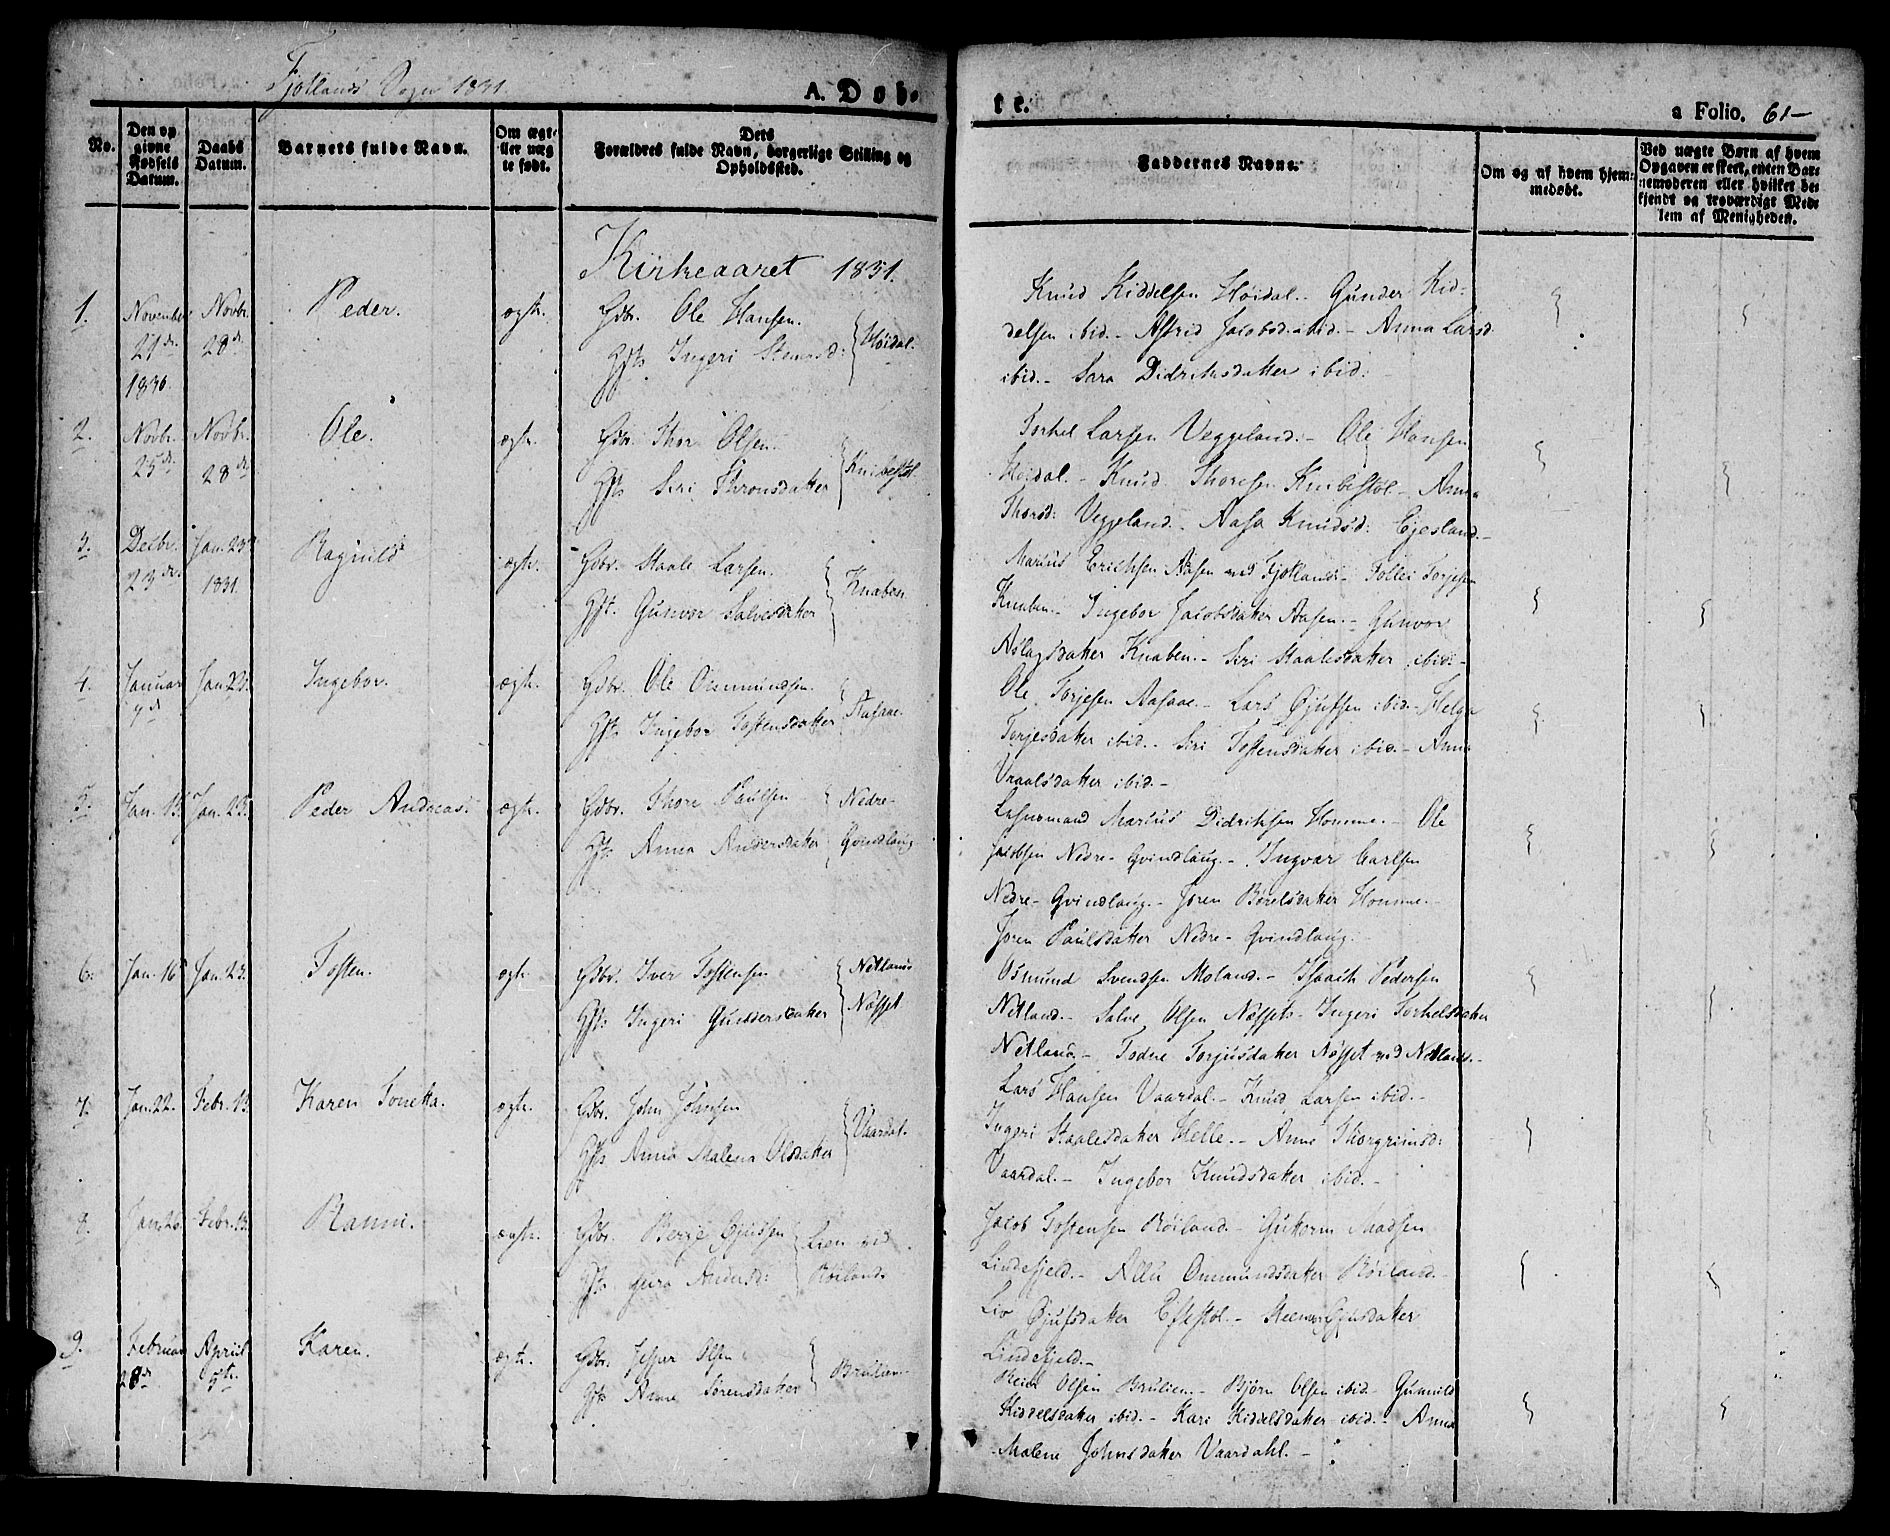 Fjotlands Sogn 1831.
A. Døb-
te.
a Folio. 61-
No.
Den op
givne
Fødsels
Datum.
Daabs
Datum.
Barnets fulde Navn.
Om ægte
ller uæg
te født.
Dets
Forældres fulde Navn, borgerlige Stilling og
Opholdssted.
Faddernes Navne.
Om og af hvem hjem-
medøbt.
Ved uægte Børn af hvem
Opgaven er skeet, enten Bar-
nemoderen eller hvilket be-
kjendt og troværdigt Med-
lem af Menigheden.
Kirkeaaret 1831.
1. November 21de 1830. Novbr. 28de Peder. ægte.
Gdbr. Ole Hansen.
Gft. Ingeri Stensd: Høidal.
Knud Kiddelsen Høidal. - Gunder Kid-
delsen ibid. - Astrid Jacobsd. ibid. - Anna Larsd
ibid. - Sara Didriksdatter ibid.
2. Novbr. 25de Novbr. 28de Ole. ægte.
Gdbr. Thor Olsen.
Gft. Siri Thronsdatter Knibestøl
Torkel Larsen Veggeland. - Ole Hansen
Høidal. - Knud Thorsen Knibestøl - Anna
Thorsd: Veggeland. - Aasa Knudsd: Egesland. -
3. Decbr. 23de Jan. 23de 1831. Ragnild ægte.
Gdbr. Staale Larsen.
Gft. Gunvor Salvesdatter Knaben
Marius Erichsen Aasen ved Fjotland - Tollei Torjesen
Knaben. - Ingebor Jacobsdatter Aasen. - Gunvor
Aslagsdatter Knaben. - Siri Staalesdatter ibid. -
4. Januar Jan 23. Ingebor. ægte.
Gdbr. Ole Ommundsen.
Gft. Ingebor Tostensdatter Aasaae.
Ole Torjesen Aasaae. - Lars Gjufsen ibid. - Helga
Torjesdatter ibid. - Siri Tostensdatter ibid. - Anna
Vraalsdatter ibid. -
5. Jan. 13. Jan. 23. Peder Andreas. ægte.
Gdbr. Thore Paulsen Nedre-
Gft. Anna Andersdatter Qvindlaug
Lensmand Marius Didriksen Homme. - Ole
Jacobsen Nedre- Qvindlaug. - Ingvar Carlsen
Nedre- Qvindlaug. - Joren Børelsdatter Homme. -
Joren Paulsdatter Nedre- Qvindlaug.
6. Jan. 16 Jan. 23. Tosten. ægte.
Gdbr. Iver Tostensen Netlands
Gft. Ingeri Gundersdatter Næsset
Osmund Svendsen Moland. - Isaach Pedersen
Netland. - Salve Olsen Næsset - Ingeri Torkelsdatter
Netland. - Todne Torjusdatter Næsset ved Netland. -
7. Jan. 22. Febr. 13. Karen Tonetta. ægte.
Gdbr. John Johnsen
Gft. Anna Malena Olsdatter Vaardal.
Lars Hansen Vaardal. - Knud Larsen ibid. -
Ingeri Staalesdatter Helle. - Anne Thorgrimsd:
Vaardal. - Ingebor Knudsdatter ibid. -
8. Jan. 26. Febr. 13. Ranni. ægte.
Gdbr. Berge Gjufsen Lien ved
Gft. Andersd: Røiland
Jacob Tostensen Røiland. - Guttorm Madsen
Lindefjeld. - Alli Ommundsdatter Røiland. -
Liv Gjufsdatter Eftestøl. - Gjusdatter
Lindefjeld. -
9. Februar 28de April 5te Karen. ægte.
Gdbr. Jesper Olsen
Gft. Anne Sørensdatter Brulien
Reier Olsen Brulien. - Bjørn Olsen ibid - Gunnild
Kiddelsdatter ibid. - Kari Kiddelsdatter ibid. - Anna
Malene Johnsdatter Vaardahl. -